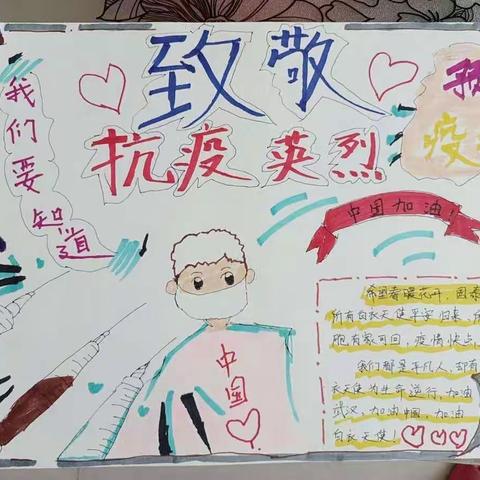 致敬
抗疫英烈
我们要知道
疫
中国加油!
希望春暖花开,国泰
所有白衣天使平安归来,
胞有家可回,疫情快点
我们都是平凡人,却有
衣天使为生命逆行,加油
武汉,加油中国,加油
白衣天使!
中国